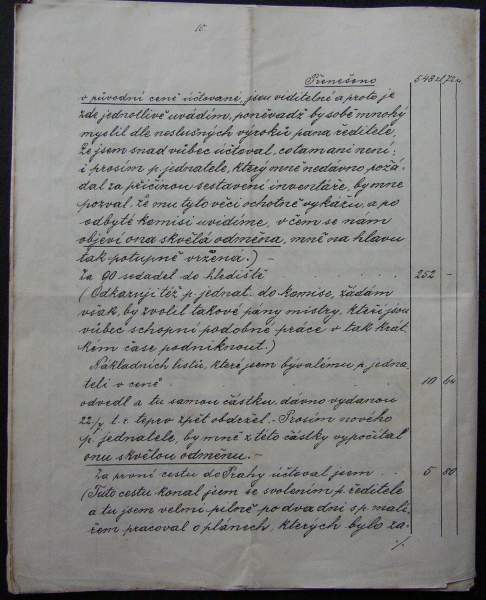 10.
Přenešeno 548 zl. 72 kr.
v původní ceně účtované, jsou viditelné a proto je
zde jednotlivě uvádím, poněvadž by sobě mnohý
myslil dle neslušných výroků pána ředitele,
že jsem snad vůbec účtoval, co tam ani není;
i prosím p. jednatele, který mně nedávno požá-
dal za příčinou sestavení inventáře, by mne
pozval, že mu tyto věci ochotně vykážu, a po
odbyté komisi uvidíme, v čem se nám
objeví ona skvělá odměna, mně na hlavu
tak potupně vržena.) –
Za 90 sedadel do hlediště . . . . 252 –
(Odkazuji též p. jednat. do komise, žádám
však, by zvolil takové pány mistry, kteří jsou
vůbec schopni podobné práce v tak krát-
kém čase podniknout.)
Nákladních listů, které jsem bývalému p. jedna-
teli v ceně . . . . 10 64
odvedl a tu samou částku, dávno vydanou
22/7 t. r. teprv zpět obdržel. – Prosím nového
p. jednatele, by mně z této částky vypočítal
onu skvělou odměnu. –
Za první cestu do Prahy účtoval jsem . . 5 80
(Tuto cestu konal jsem se svolením p. ředitele
a tu jsem velmi pilně po dva dni s p. malí-
řem pracoval o plánech, kterých bylo za-
./.